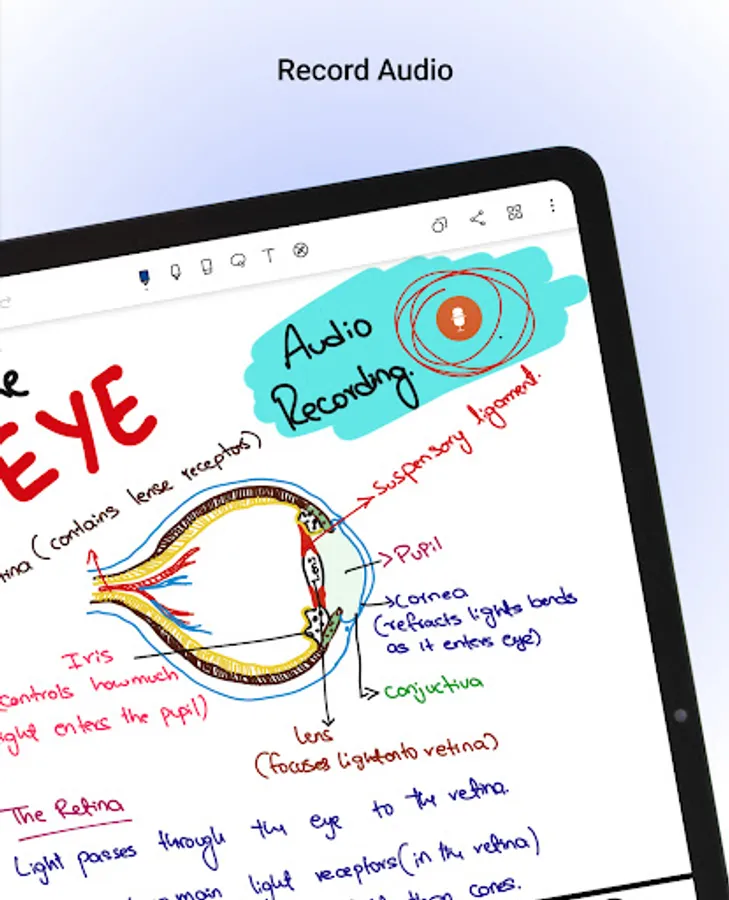 Record Audio
T
Audio
Recording.
EYE
(contains lense receptors)
Suspensory ligament.
Lens
Pupil
Cornea
(refracts lights bends
as it enters eye)
Conjuctiva
Iris
controls how much
light enters the pupil)
Lens
(focuses light onto retina)
The Retina
Light passes through the eye to the retina.
main light receptors (in the retina)
than cones.